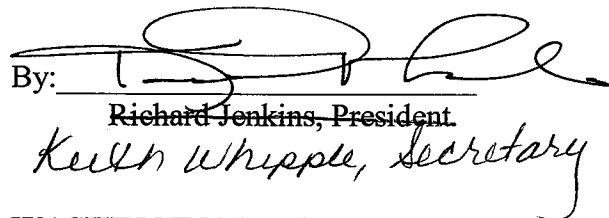 By:
Richard Jenkins, President.
Keith Whipple, Secretary